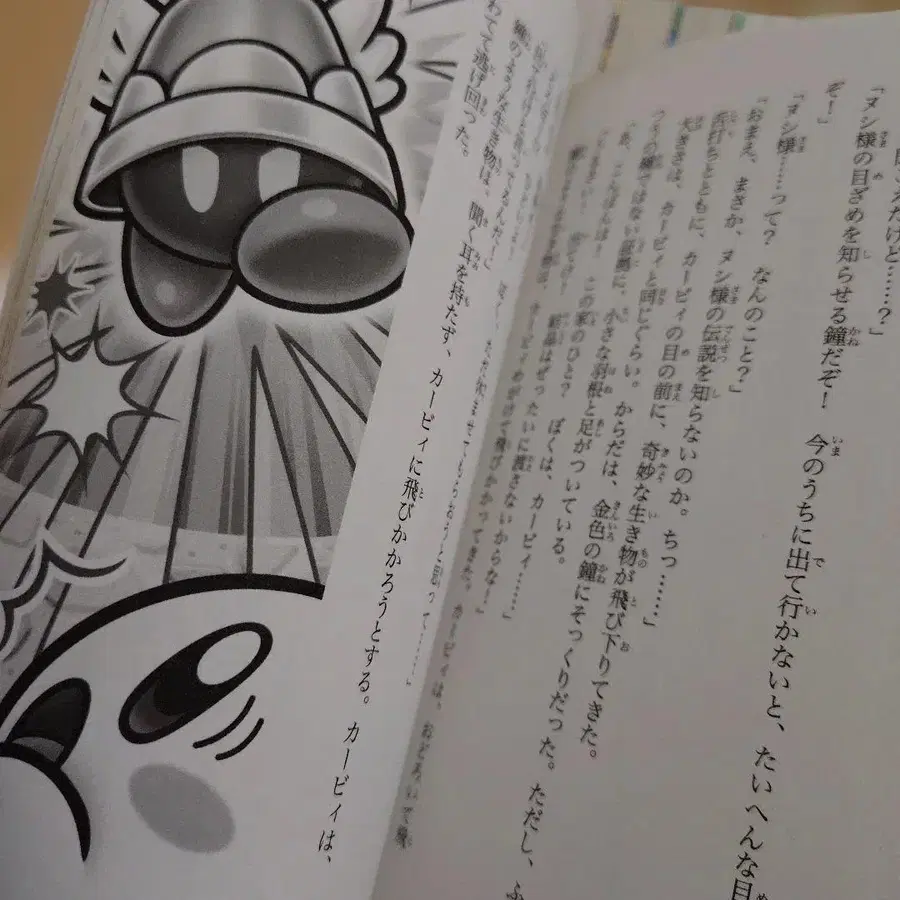 こえたけど……？」
「ヌシ様の目ざめを知らせる鐘だぞ！　今のうちに出て行かないと、たいへんな目
ぞ！」
「ヌシ様……って？　なんのこと？」
「おまえ、まさか、ヌシ様の伝説を知らないのか。ちっ……」
舌打ちとともに、カービィの目の前に、奇妙な生き物が飛び下りてきた。
大きさは、カービィと同じぐらい。からだは、金色の鐘にそっくりだった。ただし、ふ
つうの鐘ではない証拠に、小さな羽根と足がついている。
「あ、こんばんは！　この家のひと？　ぼくは、カービィ……」
ぜったいに渡さないからな！」
カービィめがけて飛びかかってきた。カービィは、おどろいて
ただ休ませてもらおうと思って……」
鐘のような生き物は、聞く耳を持たず、カービィに飛びかかろうとする。カービィは、
わてて逃げ回った。